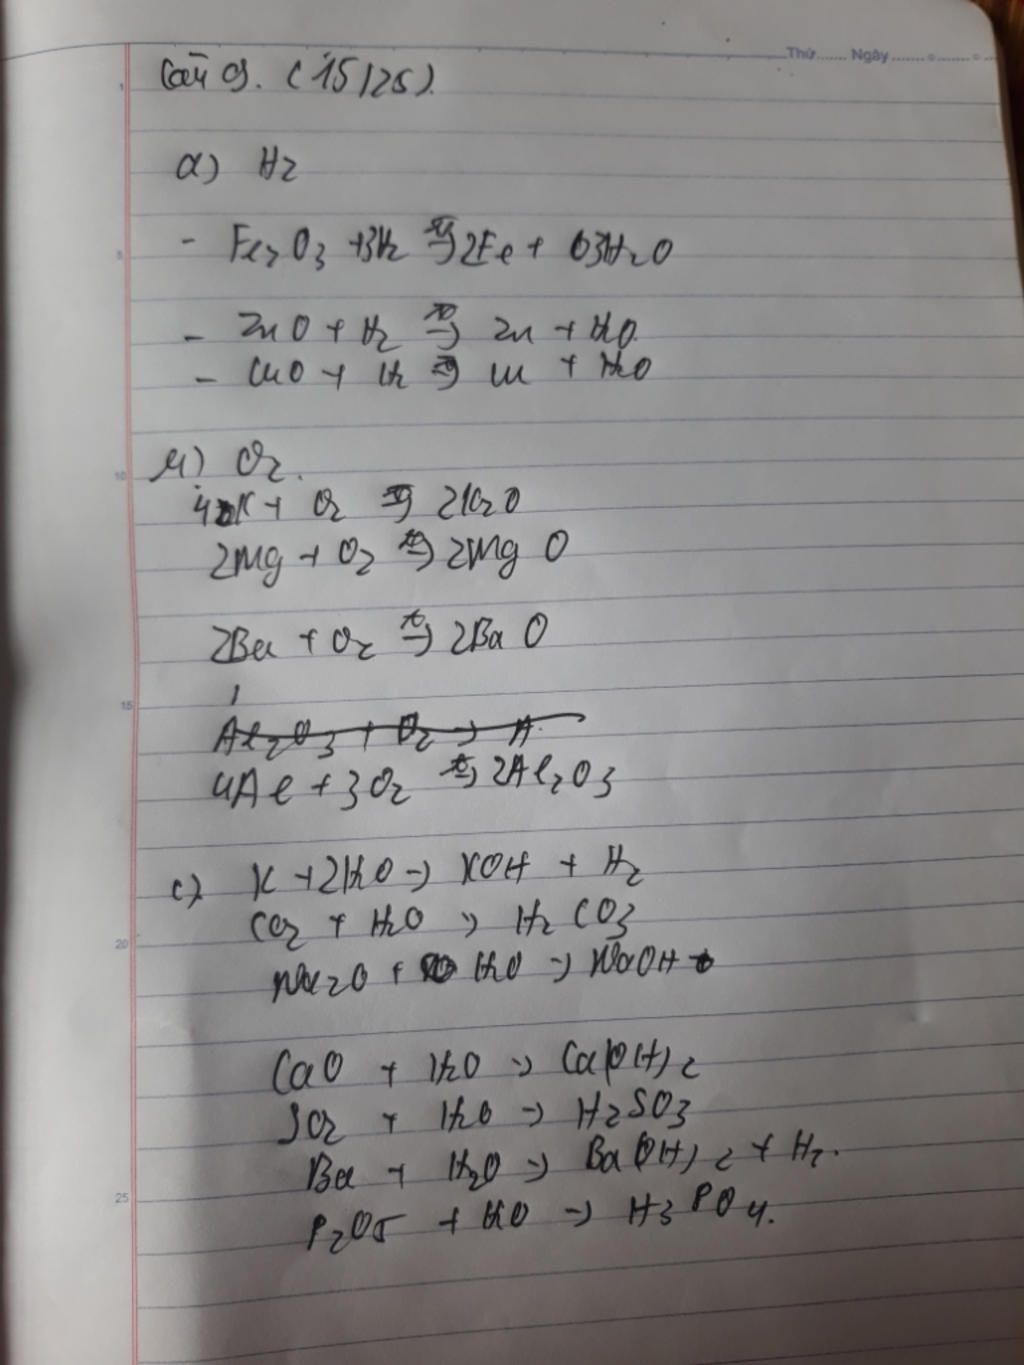 Thứ...... Ngày.......
Câu 9. (15/25).
a) H2
- Fe2O3 + 3H2 t°→ 2Fe + 3H2O
- ZnO + H2 t°→ Zn + H2O
- CuO + H2 t°→ Cu + H2O
b) O2.
4K + O2 t°→ 2K2O
2Mg + O2 t°→ 2MgO
2Ba + O2 t°→ 2BaO
Al2O3 + O2 → A
4Al + 3O2 t°→ 2Al2O3
c) K + 2H2O → KOH + H2
CO2 + H2O → H2CO3
Na2O + H2O → NaOH
CaO + H2O → Ca(OH)2
SO2 + H2O → H2SO3
Ba + H2O → Ba(OH)2 + H2.
P2O5 + H2O → H3PO4.